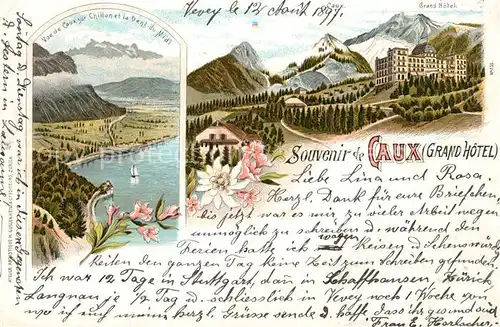 Vevey le 12 Août 1897.
Vue de Caux sur Chillon et la Dent du Midi
Caux
Grand Hôtel
Souvenir de CAUX (GRAND HÔTEL)
Liebe Lina und Rosa.
Herzl. Dank für eure Briefchen,
bis jetzt war es mir zu vieler Arbeit wegen
unmöglich zu schreiben d. während den
Ferien hatte ich wegen Reisen d. Sehenswür
keiten den ganzen Tag keine Zeit zum Schreiben gefunden
Ich war 12 Tage in Stuttgart, dan in Schaffhausen, Zürich,
Langnau je 1/2 Tag d. schliesslich in Vevey noch 1 Woche von
wo ich euch meine herzl. Grüsse sende d. hoffe dass ihr gesund seid
Frau E.
Sontag d. Dienstag war ich in
d. gestern in Lausanne